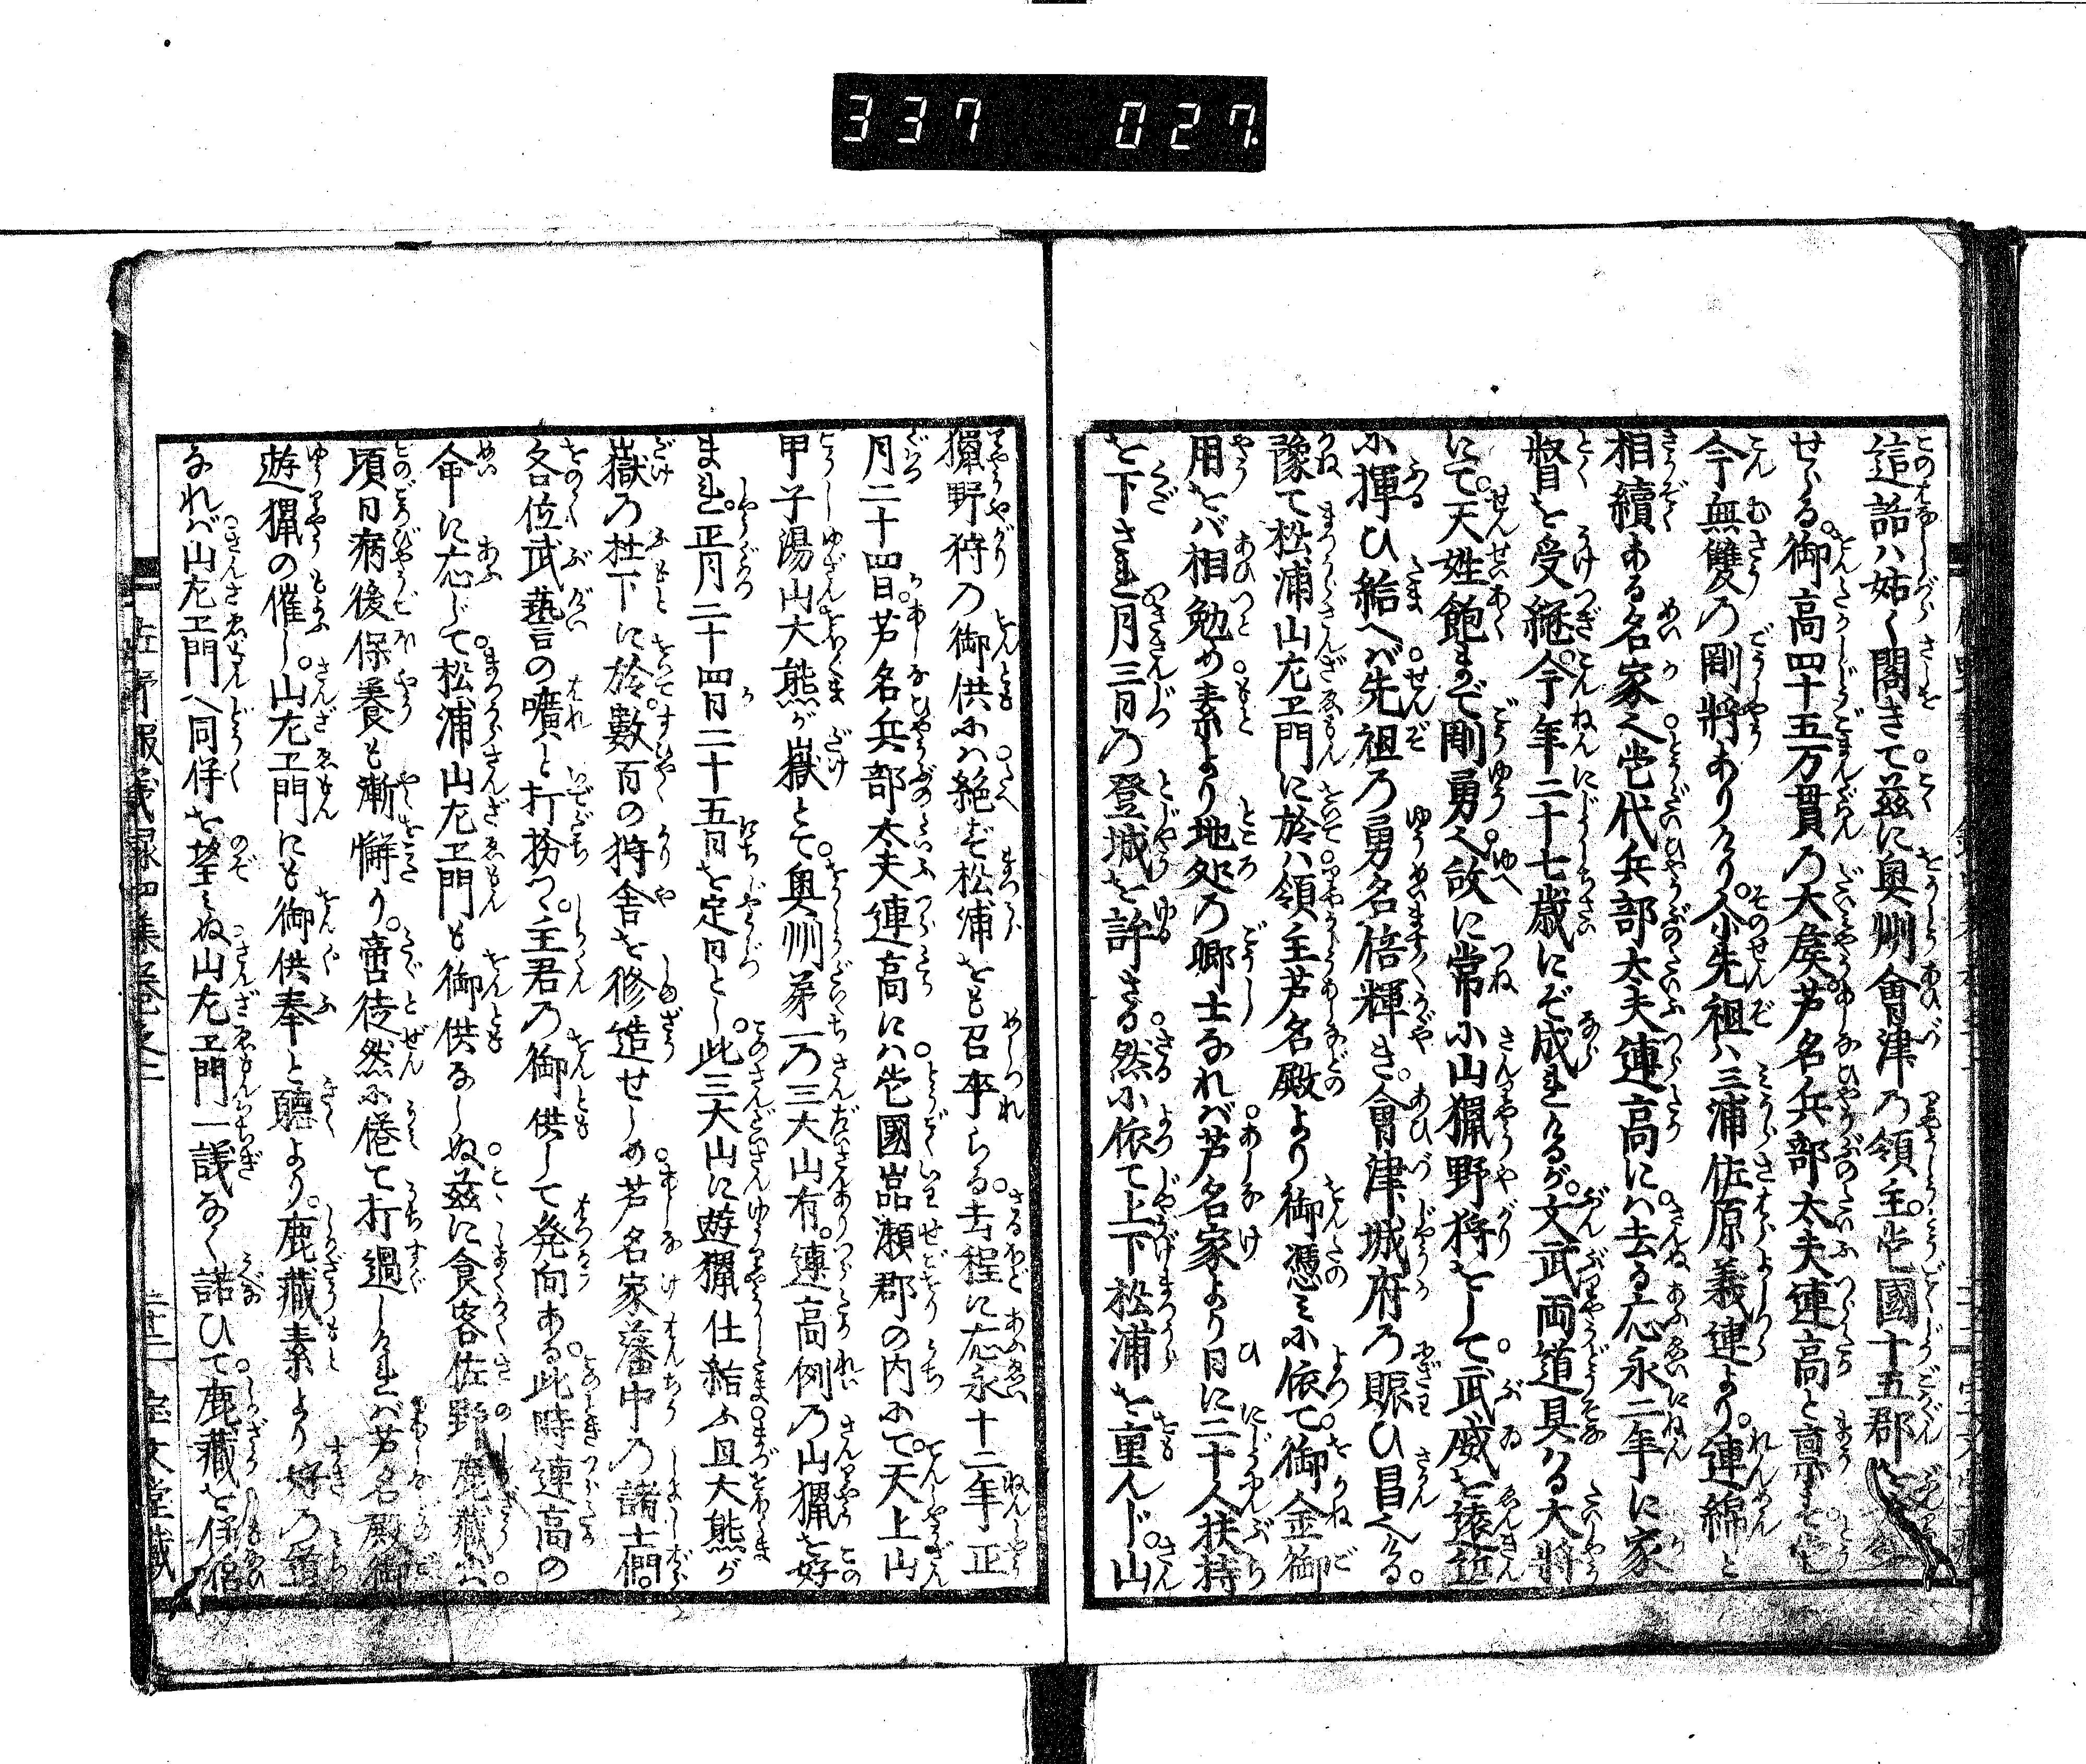 337 027
這話ハ姑く閣きて茲に奥州會津の領主当國十五郡を
せらる御高四十五万貫の大矦芦名兵部太夫連高と稟すハ当
今無雙の剛將ありけり其先祖ハ三浦佐原義連より連綿と
相續ある名家也当代兵部太夫連高にハ去る応永二年に家
督を受継今年二十七歳にぞ成玉ひけるが文武両道具ハる大將
にて天姓飽まで剛勇也故に常に山獵野狩をして武威を遠近
に揮ひ給へバ先祖の勇名倍輝き會津城府の賑ひ昌んなる
豫て松浦山左エ門に於ハ領主芦名殿より御憑ミに依て御金御
用をバ相勉め素より地処の郷士なれバ芦名家より月に二十人扶持
を下され月三日の登城を許さる然に依て上下松浦を重んじ山
獵野狩の御供にハ絶ず松浦をも召卒らる去程に応永十二年正
月二十四日芦名兵部太夫連高にハ当國岩瀬郡の内にて天上山
甲子湯山大熊が嶽とて奥州第一の三大山有連高例の山獵を好
まれ正月二十四日二十五日を定日とし此三大山に遊獵仕給ふ且大熊が
嶽の杜下に於數百の狩舎を修造せしめ芦名家藩中の諸士們
各位武藝の曠と打扮つ主君の御供して発向ある此時連高の
命に応じて松浦山左エ門も御供なしぬ茲に食客佐野鹿藏ハ
頃日病後保養も漸懈り啻徒然に倦て打過しけれバ芦名殿御
遊獵の催し山左エ門にも御供奉と聽より鹿藏素より好の道
なれバ山左エ門へ同伴を望ミぬ山左エ門一議なく諾ひて鹿藏を伴侶
佐野報義録四集巻之二
宝文堂藏